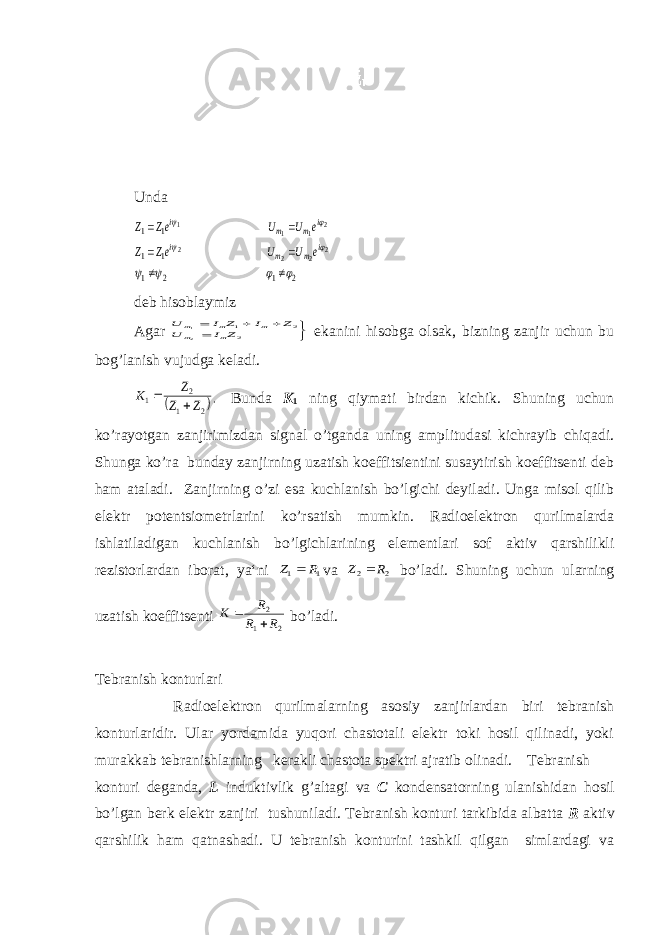 ARXIV.UZ
Unda
Z₁ = Z₁e^{iψ₁} U_{m₁} = U_{m₁}e^{iφ₂}
Z₁ = Z₁e^{iψ₂} U_{m₂} = U_{m₂}e^{iφ₂}
ψ₁ ≠ ψ₂ φ₁ ≠ φ₂
deb hisoblaymiz
Agar ekanini hisobga olsak, bizning zanjir uchun bu
bog’lanish vujudga keladi.
K₁ = Z₂/(Z₁ + Z₂). Bunda K₁ ning qiymati birdan kichik. Shuning uchun
ko’rayotgan zanjirimizdan signal o’tganda uning amplitudasi kichrayib chiqadi.
Shunga ko’ra bunday zanjirning uzatish koeffitsientini susaytirish koeffitsenti deb
ham ataladi. Zanjirning o’zi esa kuchlanish bo’lgichi deyiladi. Unga misol qilib
elektr potentsiometrlarini ko’rsatish mumkin. Radioelektron qurilmalarda
ishlatiladigan kuchlanish bo’lgichlarining elementlari sof aktiv qarshilikli
rezistorlardan iborat, ya’ni Z₁ = R₁ va Z₂ = R₂ bo’ladi. Shuning uchun ularning
uzatish koeffitsenti K = R₂/(R₁ + R₂) bo’ladi.
Tebranish konturlari
Radioelektron qurilmalarning asosiy zanjirlardan biri tebranish
konturlaridir. Ular yordamida yuqori chastotali elektr toki hosil qilinadi, yoki
murakkab tebranishlarning kerakli chastota spektri ajratib olinadi. Tebranish
konturi deganda, L induktivlik g’altagi va C kondensatorning ulanishidan hosil
bo’lgan berk elektr zanjiri tushuniladi. Tebranish konturi tarkibida albatta R aktiv
qarshilik ham qatnashadi. U tebranish konturini tashkil qilgan simlardagi va